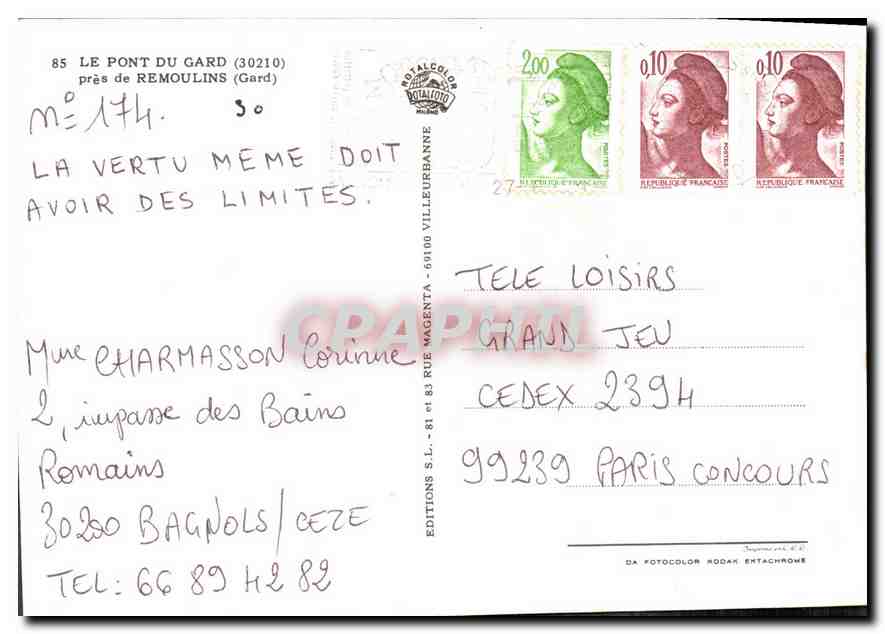 85 LE PONT DU GARD (30210)
près de REMOULINS (Gard)
N° 174. 30
LA VERTU MEME DOIT
AVOIR DES LIMITES.
Mme CHARMASSON Corinne
2, impasse des Bains
Romains
30200 BAGNOLS/CEZE
TEL: 66 89 42 82
EDITIONS S.L. - 81 et 83 RUE MAGENTA - 69100 VILLEURBANNE
ROTALCOLOR
ROTALFOTO
MILANO
2,00
POSTES
REPUBLIQUE FRANÇAISE
0,10
POSTES
REPUBLIQUE FRANÇAISE
0,10
POSTES
REPUBLIQUE FRANÇAISE
27-
CPAPHIL
TELE LOISIRS
GRAND JEU
CEDEX 2394
99239 PARIS CONCOURS
DA FOTOCOLOR KODAK EKTACHROME